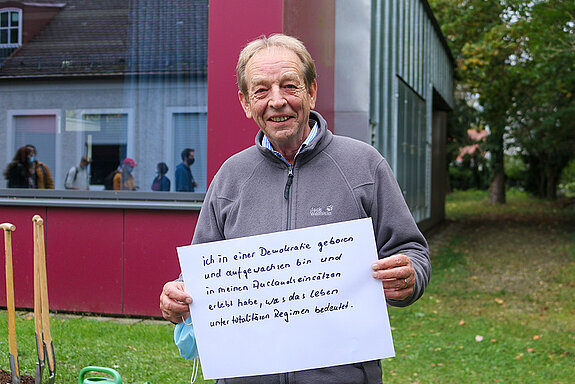 Jack
Wolfskin
ich in einer Demokratie geboren
und aufgewachsen bin und
in meinen Auslandseinsätzen
erlebt habe, was das Leben
unter totalitären Regimen bedeutet.